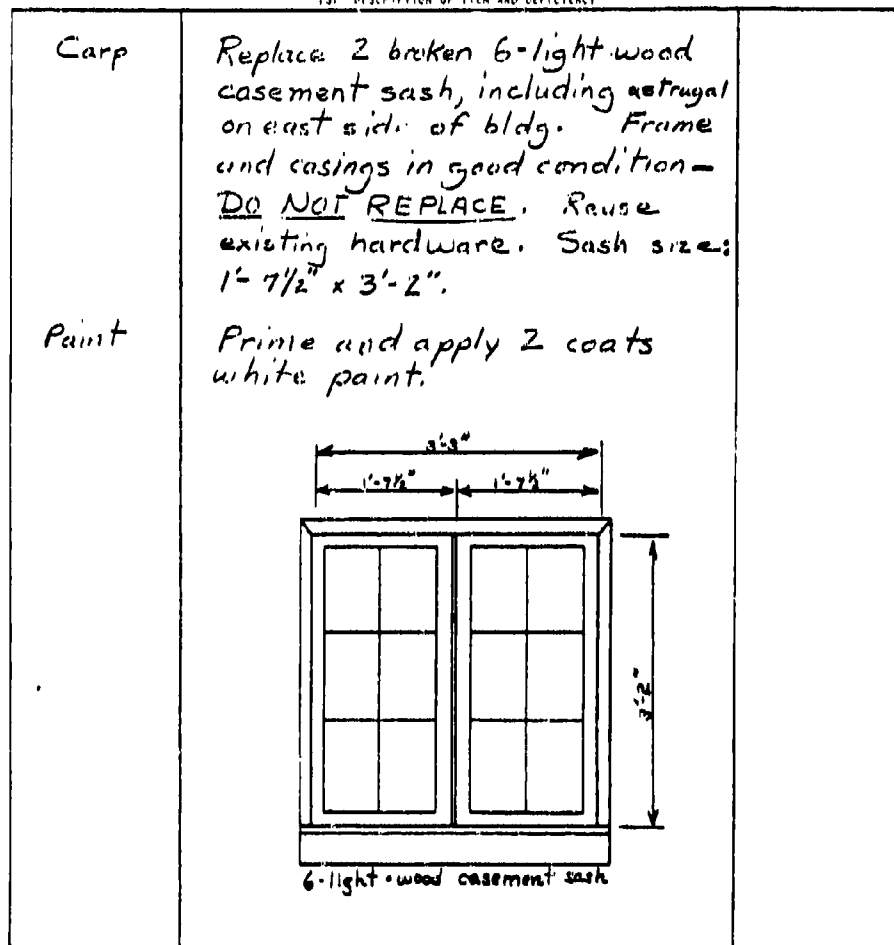 (3) DESCRIPTION OF ITEM AND DEFICIENCY
Carp
Replace 2 broken 6-light wood
casement sash, including astragal
on east side of bldg. Frame
and casings in good condition-
DO NOT REPLACE. Reuse
existing hardware. Sash size:
1'-7½" x 3'-2".
Paint
Prime and apply 2 coats
white paint.
3'-3"
1'-7½" 1'-7½"
3'-2"
6-light wood casement sash